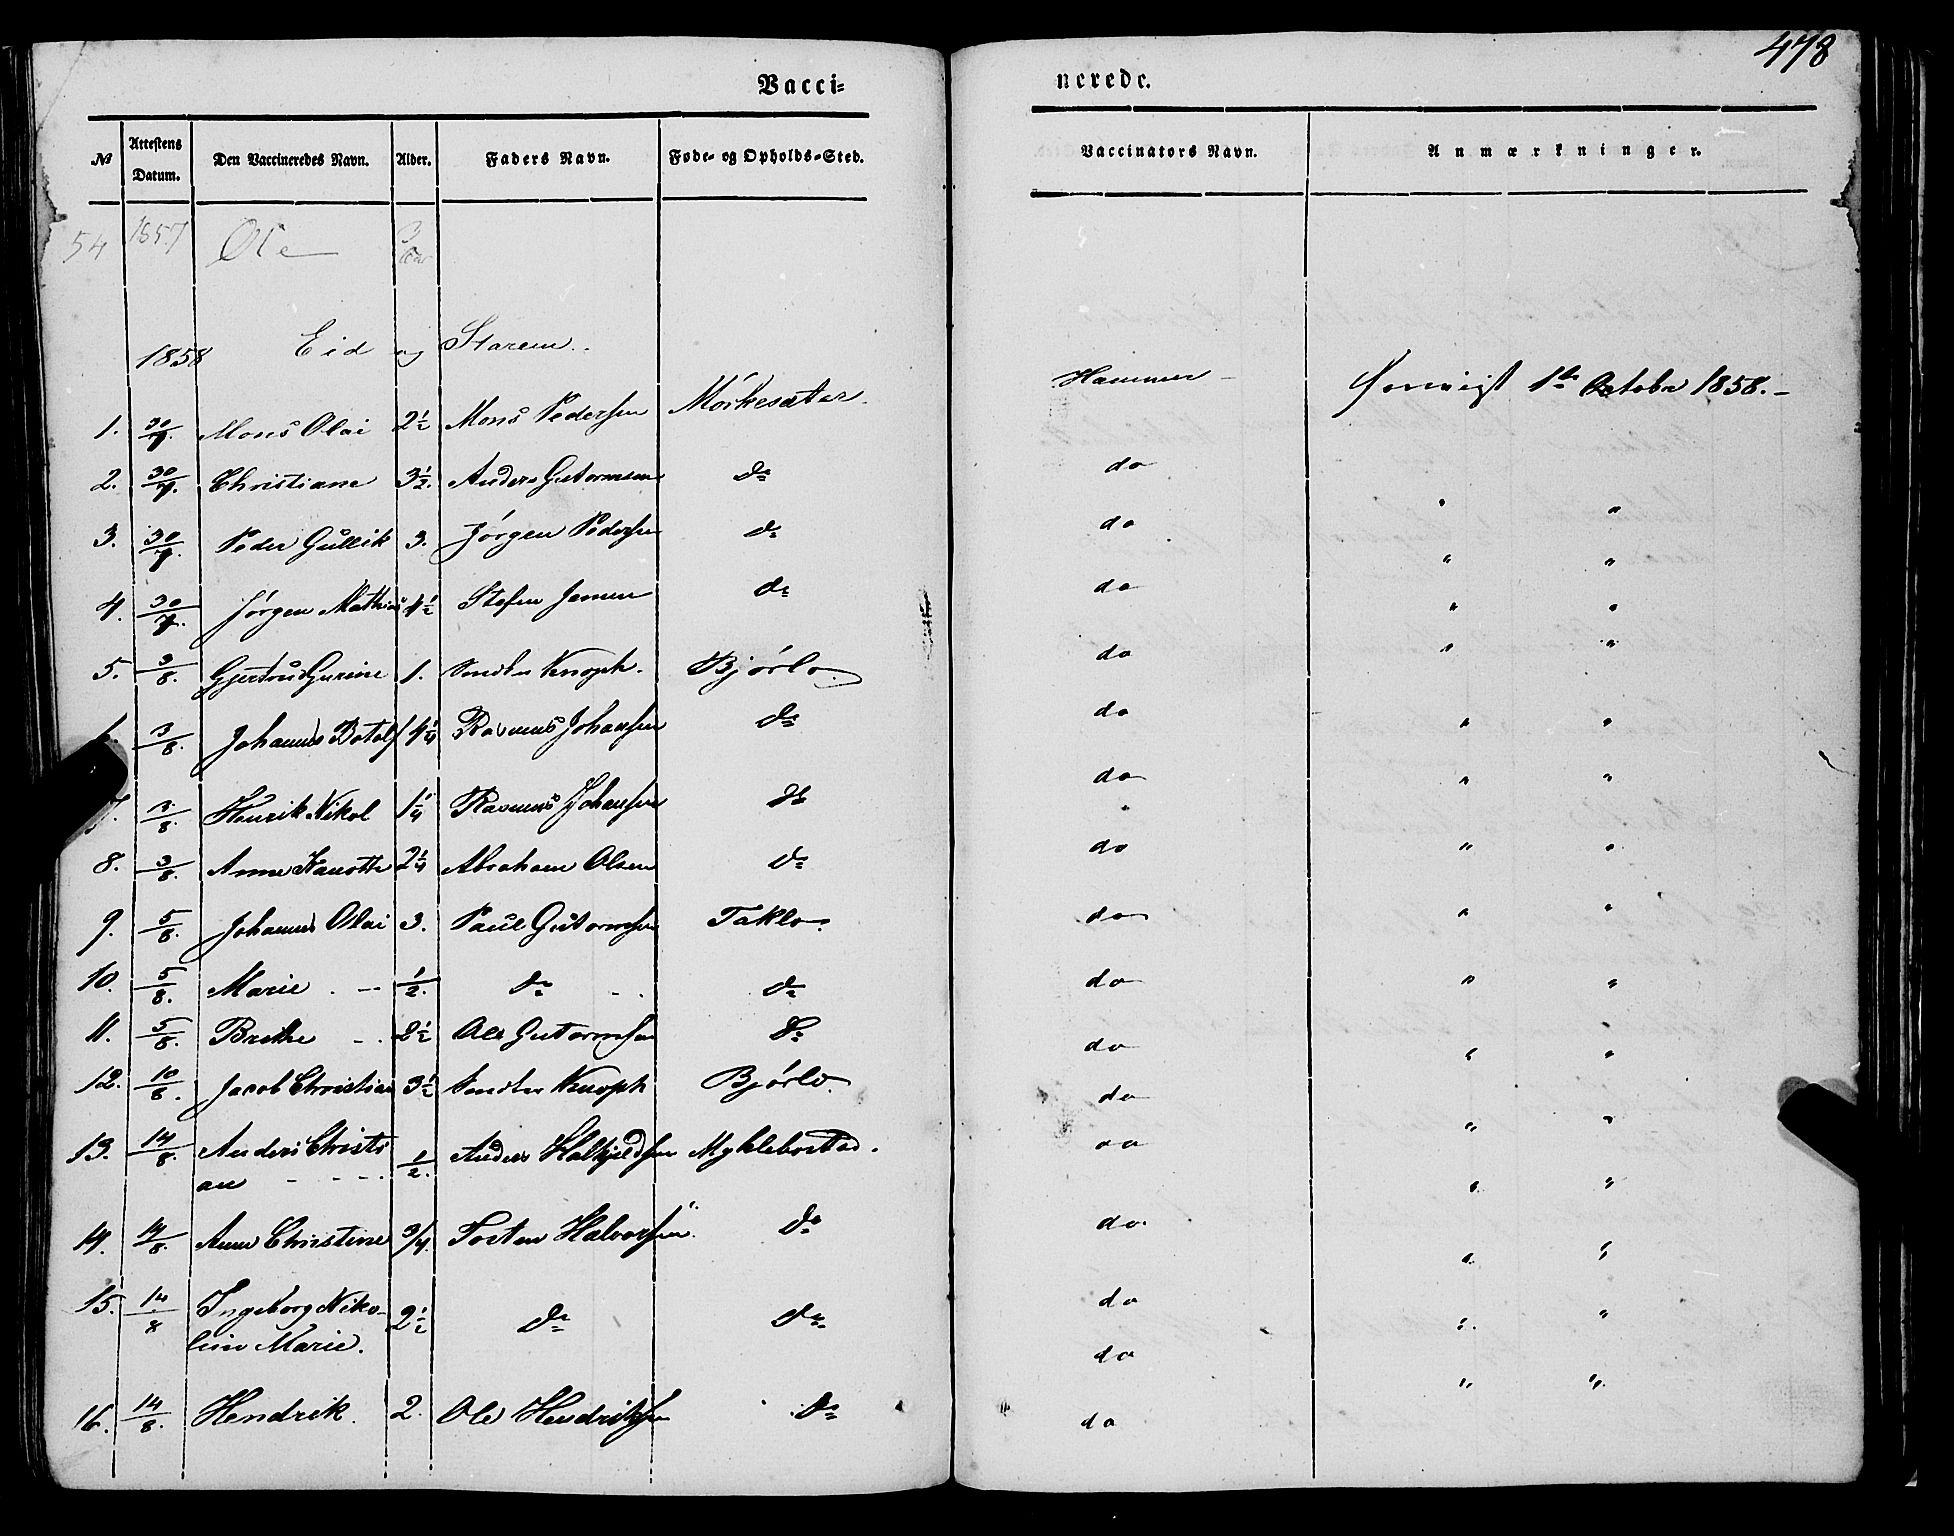 478
Vacci- nerede.
№ Attestens Datum. Den Vaccineredes Navn. Alder. Faders Navn. Føde- og Opholds-Sted. Vaccinators Navn. Anmærkninger.
54 1857 Ole 3
1858 Eid og Starem.
1. 30/7. Mons Olai 2½ Mons Pedersen Mórkesæter. Hammer 1ste October 1858.
2. 30/7. Christiane 3½. Anders Gutormsen do do " "
3. 30/7. Peder Gullik 3. Jórgen Pedersen do do " "
4. 30/7. Jórgen Mathias 1½ Stefen Jensen do do " "
5. 3/8. Gjertrud Gurine 1. Knoph. Bjórlo. do " "
6. 3/8. Johannes Botolf 1¼ Rasmus Johansen do do " "
7. 3/8. Henrik Nikol 1¼ Rasmus Johansen do do " "
8. 3/8. Anne 2¼ Abraham Olsen do do " "
9. 5/8. Johannes Olai 3. Paul Gutormsen Taklo. do " "
10. 5/8. Marie ½. do do do " "
11. 5/8. Brithe 2½ Ole Gutormsen do do " "
12. 10/8. Jacob Christian 3½ Knoph Bjórlo. do " "
13. 14/8. Anders Christi ½. Anders Halkjeldsen Myklebostad. do " "
an
14. 14/8. Anne Christine 3/4. Torsten Halvorsen. do do " "
15. 14/8 Ingeborg Niko- 2½ do do do " "
line Marie.
16. 14/8. Hendrik. 2. Ole Hendriksen do do " "
do